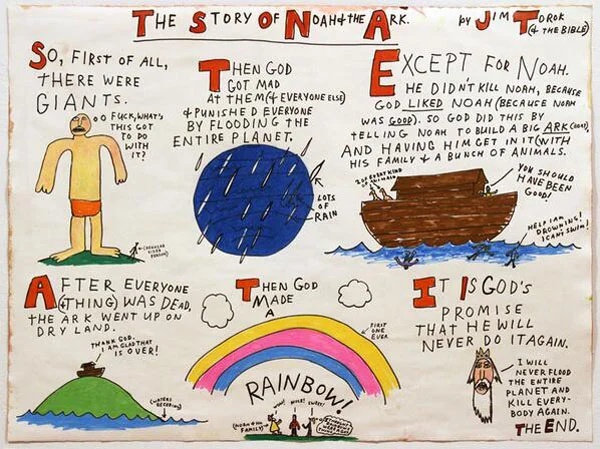 THE STORY OF NOAH & THE ARK.
by JIM TOROK
(& THE BIBLE)
SO, FIRST OF ALL,
THERE WERE
GIANTS.
O FUCK, WHAT'S
THIS GOT
TO DO
WITH
IT?
(REGULAR
SIZED
PERSON)
THEN GOD
GOT MAD
AT THEM (& EVERYONE ELSE)
& PUNISHED EVERYONE
BY FLOODING THE
ENTIRE PLANET.
LOTS
OF
RAIN
EXCEPT FOR NOAH.
HE DIDN'T KILL NOAH, BECAUSE
GOD LIKED NOAH (BECAUSE NOAH
WAS GOOD). SO GOD DID THIS BY
TELLING NOAH TO BUILD A BIG ARK (BOAT),
AND HAVING HIM GET IN IT (WITH
HIS FAMILY & A BUNCH OF ANIMALS.
2 OF EVERY KIND
OF ANIMAL
YOU SHOULD
HAVE BEEN
GOOD!
HELP I AM
DROWNING!
I CAN'T SWIM!
AFTER EVERYONE
(& THING) WAS DEAD,
THE ARK WENT UP ON
DRY LAND.
THANK GOD.
I AM GLAD THAT
IS OVER!
(WATERS
RECEDING)
THEN GOD
MADE
A
RAINBOW!
FIRST
ONE
EVER
WOW! NICE! SWEET!
(NOAH & HIS
FAMILY)
IT IS GOD'S
PROMISE
THAT HE WILL
NEVER DO IT AGAIN.
I WILL
NEVER FLOOD
THE ENTIRE
PLANET AND
KILL EVERY-
BODY AGAIN.
THE END.